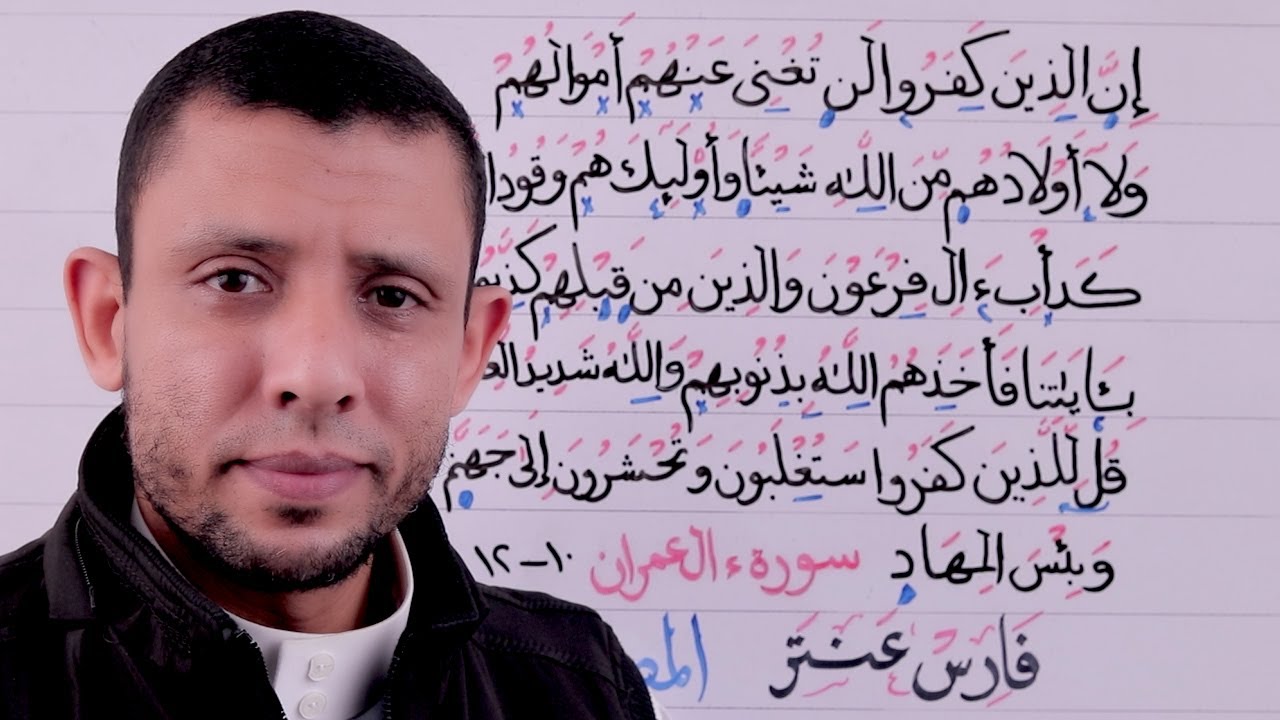 إِنَّ الَّذِينَ كَفَرُوا لَن تُغْنِيَ عَنْهُمْ أَمْوَالُهُمْ
وَلَآ أَوْلَادُهُم مِّنَ اللَّهِ شَيْئًا وَأُوْلَٰٓئِكَ هُمْ وَقُودُ
كَدَأْبِ ءَالِ فِرْعَوْنَ وَالَّذِينَ مِن قَبْلِهِمْ
بِـَٔايَٰتِنَا فَأَخَذَهُمُ اللَّهُ بِذُنُوبِهِمْ وَاللَّهُ شَدِيدُ
قُل لِّلَّذِينَ كَفَرُوا سَتُغْلَبُونَ وَتُحْشَرُونَ إِلَىٰ جَهَنَّمَ
وَبِئْسَ الْمِهَادُ سورة ءال عمران ١٠-١٢
فَارِسْ عَنتَر